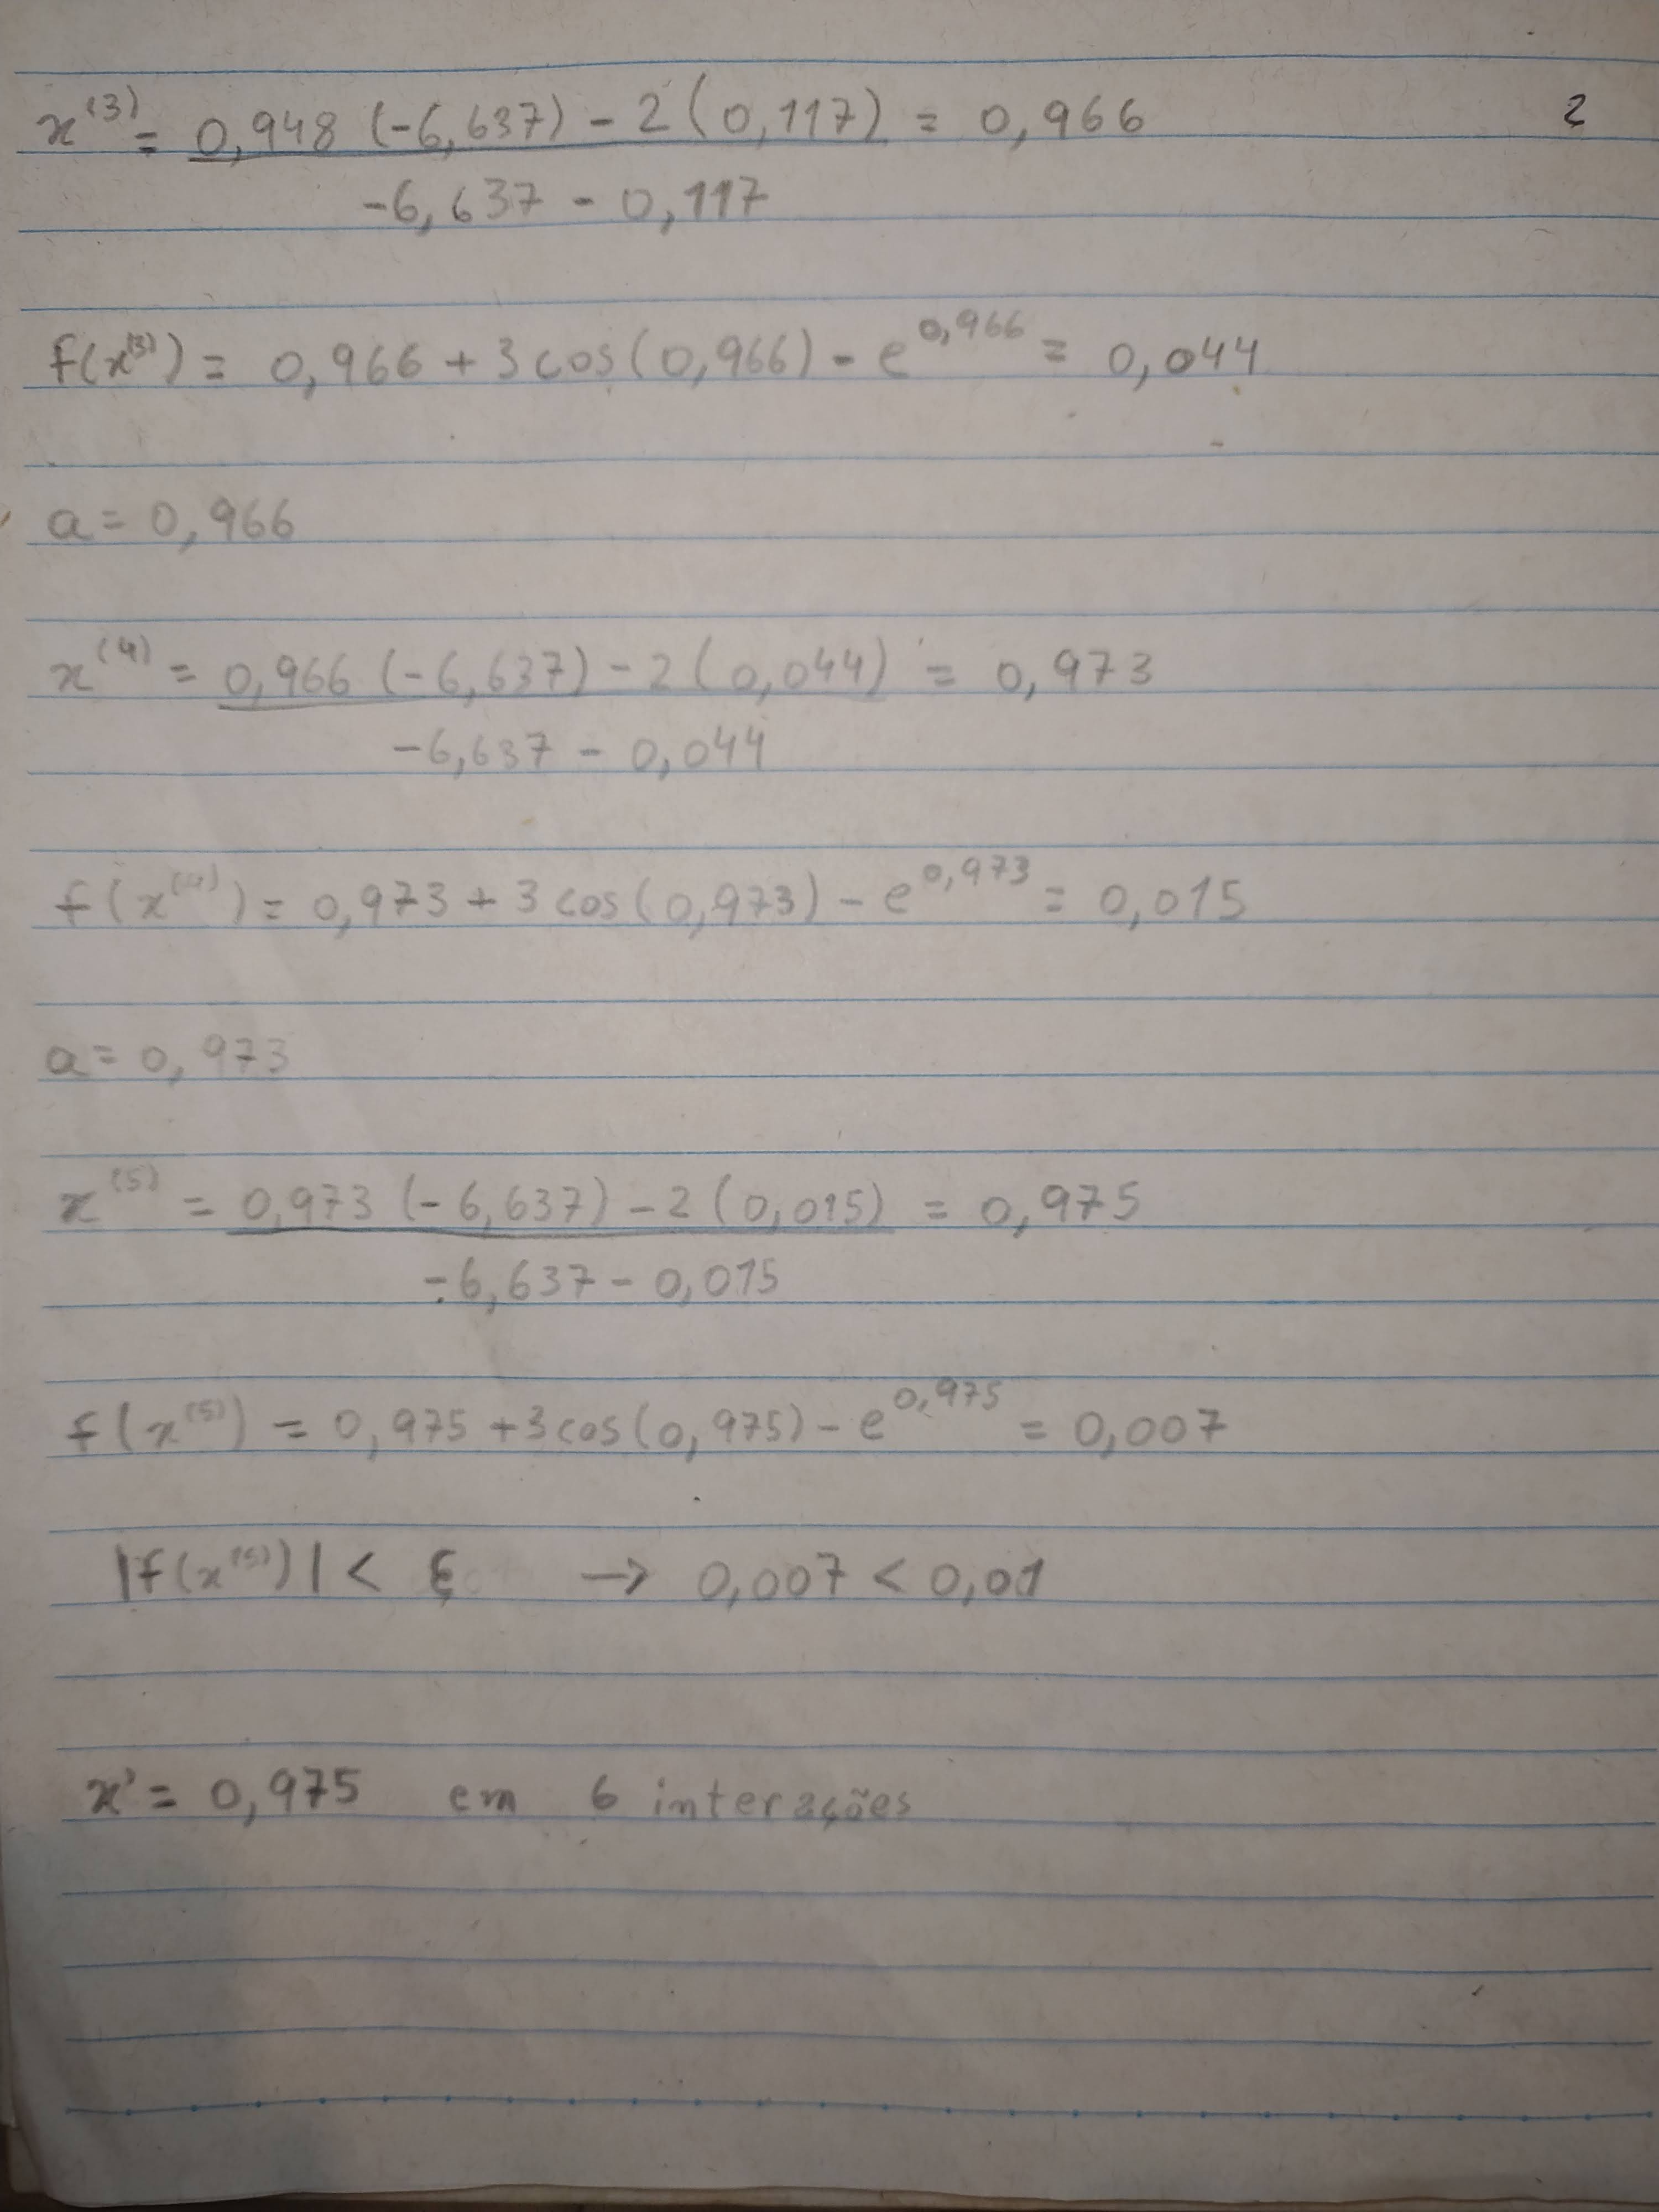 2
x⁽³⁾ = 0,948 (-6,637) - 2 (0,117) = 0,966
-6,637 - 0,117
f(x⁽³⁾) = 0,966 + 3 cos(0,966) - e^0,966 = 0,044
a = 0,966
x⁽⁴⁾ = 0,966 (-6,637) - 2 (0,044) = 0,973
-6,637 - 0,044
f(x⁽⁴⁾) = 0,973 + 3 cos(0,973) - e^0,973 = 0,015
a = 0,973
x⁽⁵⁾ = 0,973 (-6,637) - 2 (0,015) = 0,975
-6,637 - 0,015
f(x⁽⁵⁾) = 0,975 + 3 cos(0,975) - e^0,975 = 0,007
|f(x⁽⁵⁾)| < ξ → 0,007 < 0,01
x' = 0,975 em 6 interações